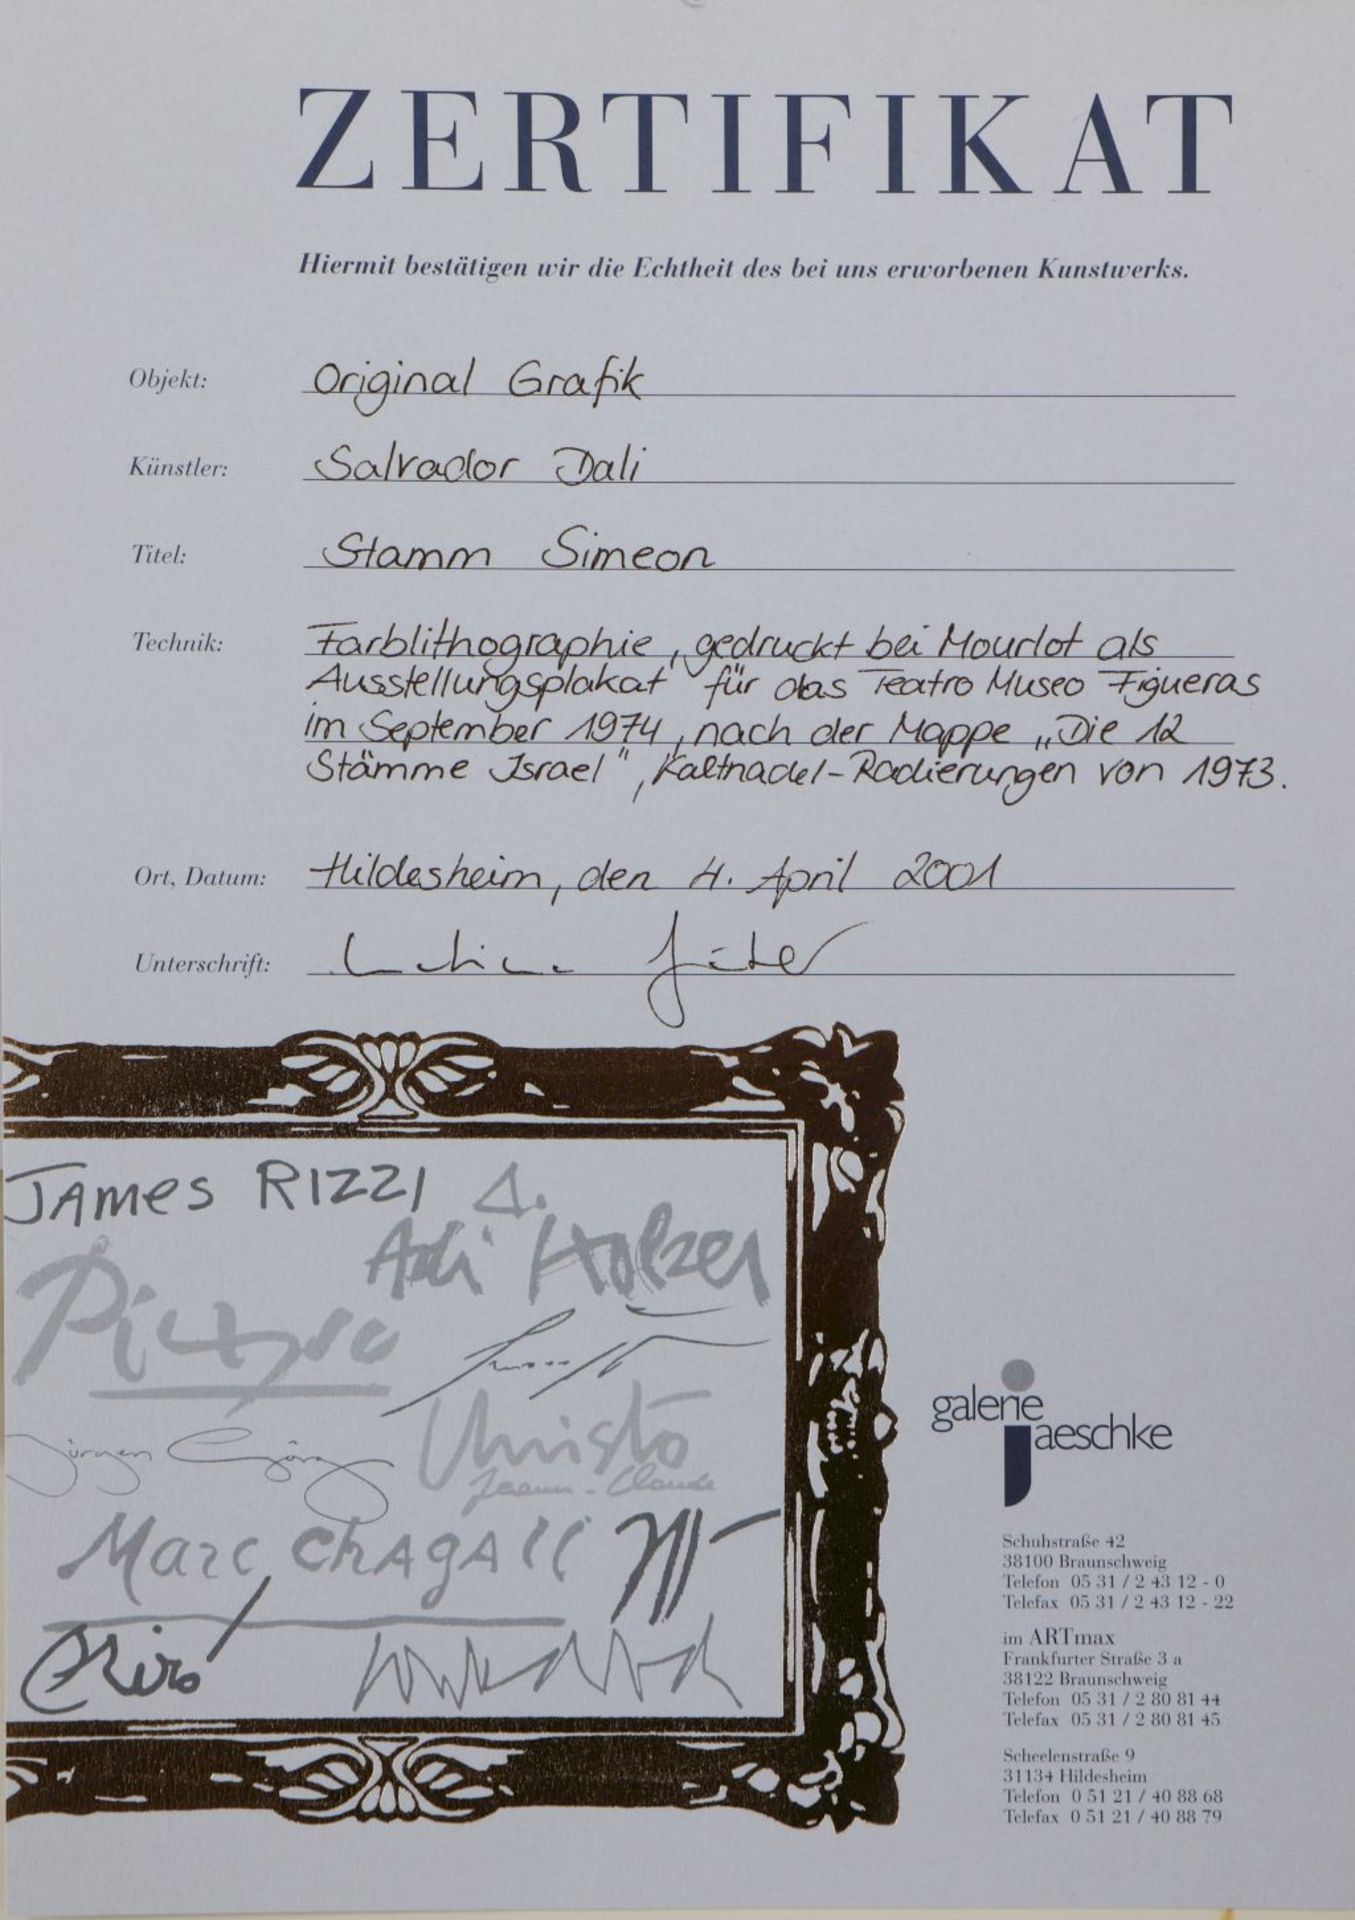 ZERTIFIKAT
Hiermit bestätigen wir die Echtheit des bei uns erworbenen Kunstwerks.
Objekt: Original Grafik
Künstler: Salvador Dali
Titel: Stamm Simeon
Technik: Farblithographie, gedruckt bei Mourlot als
Ausstellungsplakat für das Teatro Museo Figueras
im September 1974, nach der Mappe „Die 12
Stämme Israel", Kaltnadel-Radierungen von 1973.
Ort, Datum: Hildesheim, den 4. April 2001
Unterschrift:
JAMES RIZZI
A.
Adi Holzer
Picasso
Jürgen Görg
Christo
Jeanne-Claude
Marc Chagall
Miró
galerie
jaeschke
Schuhstraße 42
38100 Braunschweig
Telefon 05 31 / 2 43 12 - 0
Telefax 05 31 / 2 43 12 - 22
im ARTmax
Frankfurter Straße 3 a
38122 Braunschweig
Telefon 05 31 / 2 80 81 44
Telefax 05 31 / 2 80 81 45
Scheelenstraße 9
31134 Hildesheim
Telefon 0 51 21 / 40 88 68
Telefax 0 51 21 / 40 88 79